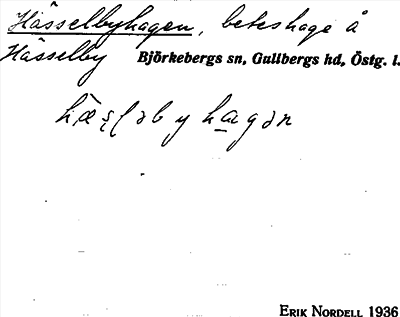 Hässelbyhagen, beteshage å
Hässelby Björkebergs sn, Gullbergs hd, Östg. l.
hæs̨ʃəbyhagən
ERIK NORDELL 1936